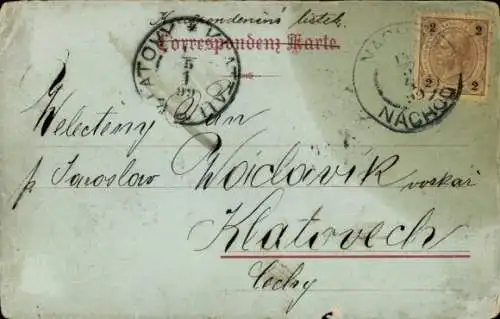 Korespondenční lístek.
Correspondenz-Karte.
KLATOVY
5
99
NÁCHOD
2 2
2 2
Veletěný Pan
p Jaroslav Wáclavík voskář
Klatovech
Čechy